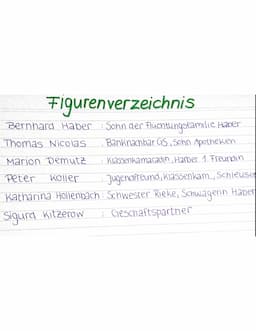 Figurenverzeichnis
Bernhard Haber : Sohn der Flüchtlingsfamilie Haber
Thomas Nicolas : Banknachbar GS, Sohn Apotheker
Marion Demutz : Klassenkameradin, Haber 1. Freundin
Peter Koller : Jugendfreund, Klassenkam., Schleuser
Katharina Hollenbach : Schwester Rieke, Schwägerin Haber
Sigurd Kitzerow : Geschäftspartner